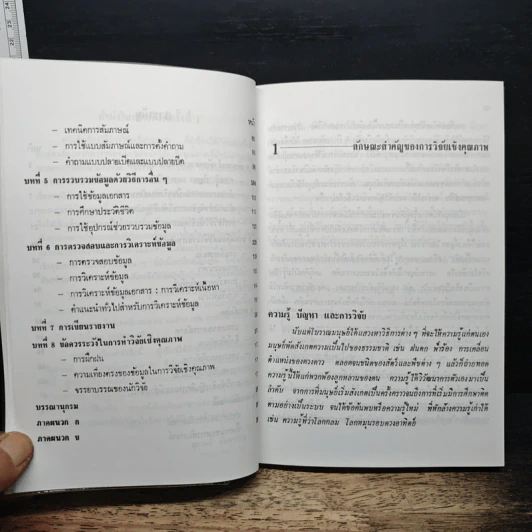 – เทคนิคการสัมภาษณ์
– การใช้แบบสัมภาษณ์และการตั้งคำถาม
– คำถามแบบปลายเปิดและแบบปลายปิด
บทที่ 5 การรวบรวมข้อมูลด้วยวิธีการอื่น ๆ
– การใช้ข้อมูลเอกสาร
– การศึกษาประวัติชีวิต
– การใช้อุปกรณ์ช่วยรวบรวมข้อมูล
บทที่ 6 การตรวจสอบและการวิเคราะห์ข้อมูล
– การตรวจสอบข้อมูล
– การวิเคราะห์ข้อมูล
– การวิเคราะห์ข้อมูลเอกสาร : การวิเคราะห์เนื้อหา
– คำแนะนำทั่วไปสำหรับการวิเคราะห์ข้อมูล
บทที่ 7 การเขียนรายงาน
บทที่ 8 ข้อควรระวังในการทำวิจัยเชิงคุณภาพ
– การฝึกฝน
– ความเที่ยงตรงของข้อมูลในการวิจัยเชิงคุณภาพ
– จรรยาบรรณของนักวิจัย
บรรณานุกรม
ภาคผนวก ก
ภาคผนวก ข
1 ลักษณะสำคัญของการวิจัยเชิงคุณภาพ
ความรู้ ปัญหา และการวิจัย
นับแต่โบราณมนุษย์ได้แสวงหาวิธีการต่าง ๆ ที่จะให้ความรู้แก่ตนเอง
มนุษย์หัดสังเกตความเป็นไปของธรรมชาติ เช่น ฝนตก ฟ้าร้อง การเคลื่อน
ตำแหน่งของดวงดาว ตลอดจนชนิดของสัตว์และพืชต่าง ๆ แล้วก็ถ่ายทอด
ความรู้นี้ให้แก่พวกพ้องลูกหลานของตน ความรู้ได้วิวัฒนาการตัวเองมาเป็น
ลำดับ จากการที่มนุษย์เริ่มสังเกตเป็นครั้งคราวจนถึงการที่เริ่มมีการศึกษาติด
ตามอย่างเป็นระบบ จนได้ข้อค้นพบหรือความรู้ใหม่ ที่หักล้างความรู้เก่าได้
เช่น ความรู้ที่ว่าโลกกลม โลกหมุนรอบดวงอาทิตย์